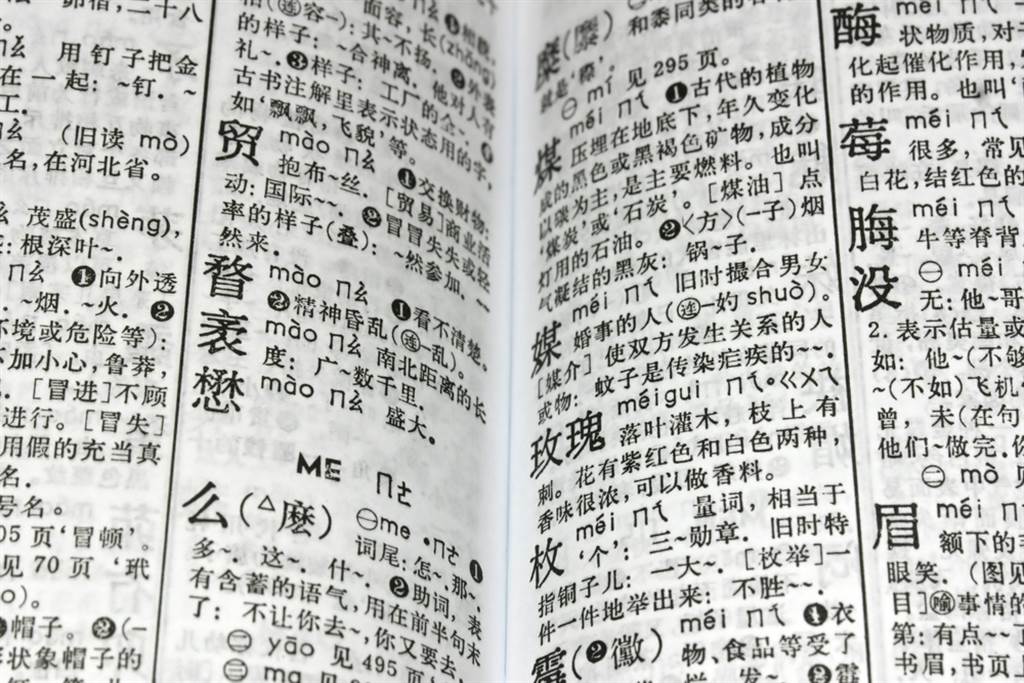 用钉子把金
在一起：~钉．~
工．
(旧读 mò)
名，在河北省。
茂盛(shèng)，
：根深叶~．
ㄇㄠ ❶向外透
．~烟．~火．❷
环境或危险等)：
不加小心，鲁莽，
．[冒进]不顾
进行。[冒失]
用假的充当真
名．
号名。
05页‘冒顿’。
见 70 页 ‘玳
❶帽子。❷(一
形状象帽子的
相(㊣容一)：其~不扬．❷外表
的样子：~合神离．他对人有
礼~．❸样子：工厂的全~．❹
古书注解里表示状态用的字，
如‘飘飘，飞貌’等。
贸 mào ㄇㄠ ❶交换财物：
抱布~丝．[贸易]商业活
动：国际~~．❷冒冒失失或轻
率的样子(叠)：~然参加．~~
然来．
瞀 mào ㄇㄠ ❶看不清楚。
❷精神昏乱(㊣一乱)。
袤 mào ㄇㄠ 南北距离的长
度：广~数千里．
懋 mào ㄇㄠ 盛大。
ME ㄇㄜ
么(△麽) ㊀me •ㄇㄜ ❶
词尾：怎~．那~．
多~．这~．什~．❷助词，表
有含蓄的语气，用在前半句末
了：不让你去~，你又要去．
㊁ yāo 见 495 页
㊂ ma
和黍同类的
就是‘穄’。
㊀ mí 见 295 页。
煤 méi ㄇㄟˊ ❶古代的植物
压埋在地底下，年久变化
成的黑色或黑褐色矿物，成分
以碳为主，是主要燃料。也叫
‘煤炭’或‘石炭’。[煤油]点
灯用的石油。❷〈方〉(一子)烟
气凝结的黑灰：锅~子．
媒 méi ㄇㄟˊ 旧时撮合男女
婚事的人(㊣一妁 shuò)。
[媒介] 使双方发生关系的人
或物：蚊子是传染疟疾的~~．
玫瑰 méigui ㄇㄟˊ•ㄍㄨㄟ
落叶灌木，枝上有
刺。花有紫红色和白色两种，
香味很浓，可以做香料。
枚 méi ㄇㄟˊ 量词，相当于
‘个’：三~勋章．旧时特
指铜子儿：一大~．[枚举]一
件一件地举出来：不胜~~．
霉(❷黴) méi ㄇㄟˊ ❶衣
物、食品等受了
酶 méi ㄇㄟˊ
状物质，对于
化起催化作用，
的作用。也叫‘
莓 méi ㄇㄟˊ
很多，常见
白花，结红色的
脢 méi ㄇㄟˊ
牛等脊背
没 ㊀ méi
无：他~哥
2. 表示估量或
如：他~(不够
~(不如)飞机
曾，未(在句
他们~做完．你
㊁ mò 见
眉 méi ㄇㄟˊ
额下的
眼笑．(图见
目]㊣事情的
第：有点~~了
书眉，书页上